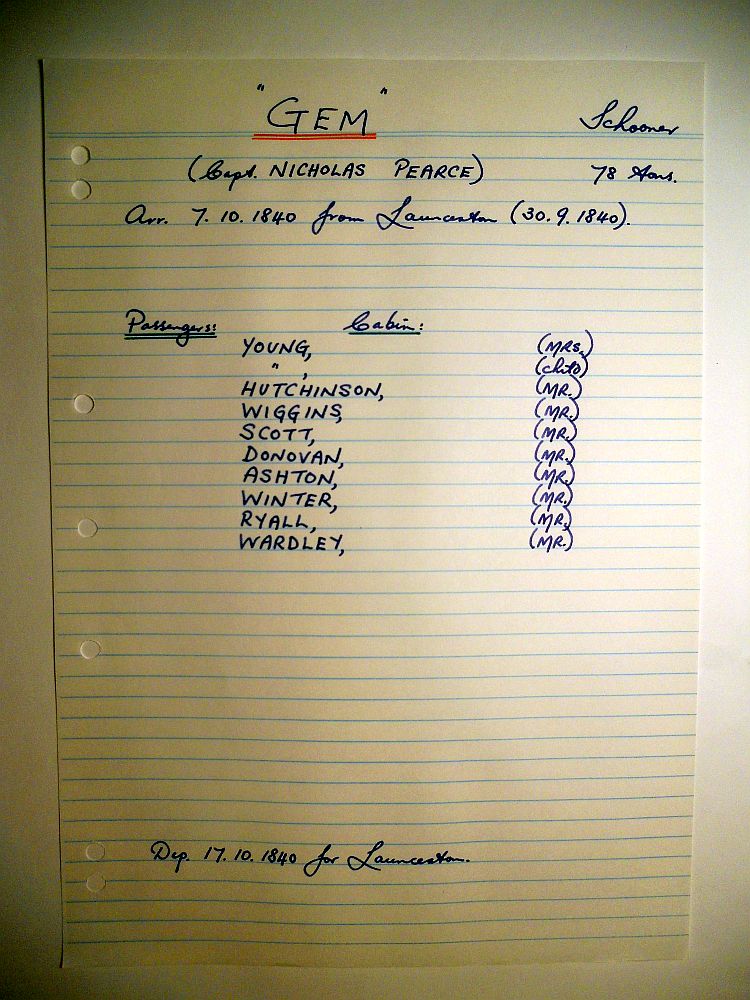 "GEM" Schooner
(Capt. NICHOLAS PEARCE) 78 tons.
Arr. 7.10.1840 from Launceston (30.9.1840).
Passengers: Cabin:
YOUNG, (MRS.)
" , (child)
HUTCHINSON, (MR.)
WIGGINS, (MR.)
SCOTT, (MR.)
DONOVAN, (MR.)
ASHTON, (MR.)
WINTER, (MR.)
RYALL, (MR.)
WARDLEY, (MR.)
Dep. 17.10.1840 for Launceston.